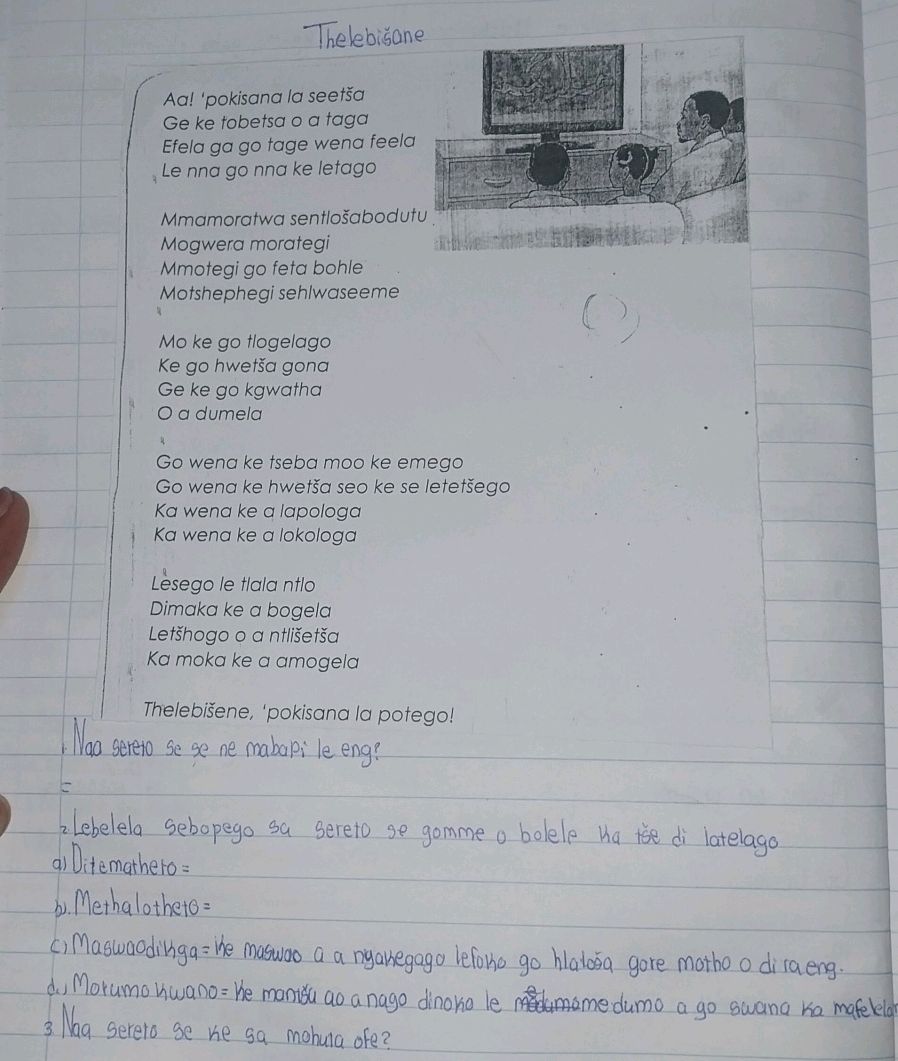 Thelebišane
Aa! 'pokisana la seetša
Ge ke tobetsa o a taga
Efela ga go tage wena feela
Le nna go nna ke letago
Mmamoratwa sentlošabodutu
Mogwera morategi
Mmotegi go feta bohle
Motshephegi sehlwaseeme
Mo ke go tlogelago
Ke go hwetša gona
Ge ke go kgwatha
O a dumela
Go wena ke tseba moo ke emego
Go wena ke hwetša seo ke se letetšego
Ka wena ke a lapologa
Ka wena ke a lokologa
Lesego le tlala ntlo
Dimaka ke a bogela
Letšhogo o a ntlišetša
Ka moka ke a amogela
Thelebišene, 'pokisana la potego!
1. Naa sereto se se ne mabapi le eng?
=
2. Lebelela sebopego sa sereto se gomme o bolele ka tše di latelago
a) Ditemathero =
b). Methalotheto =
c) Maswaodikga = ke maswao a a nyakegago lefoko go hlaloša gore motho o dira eng.
d.) Morumokwano = ke mantšu ao a nago dinoko le medumo a go swana ka mafelelo
3. Naa sereto se ke sa mohuta ofe?